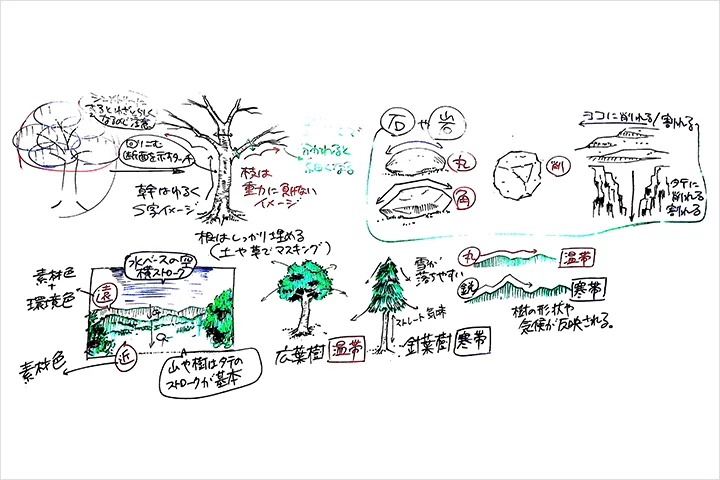 シンメトリーに
すると
なるので注意
断面を示す
幹はゆるく
S字イメージ
枝は
重力に負けない
イメージ
わかれると
細くなる
根はしっかり埋める
(土や草でマスキング)
石や岩
丸
角
削
ヨコに削れる/割れる
タテに
削れる
割れる
素材色
+
環境色
素材色
水ベースの空
横ストローク
遠
近
山や樹はタテの
ストロークが基本
広葉樹 温帯
雪が
落ちやすい
ストレート気味
針葉樹 寒帯
丸 温帯
鋭 寒帯
樹の形状や
気候が反映される。